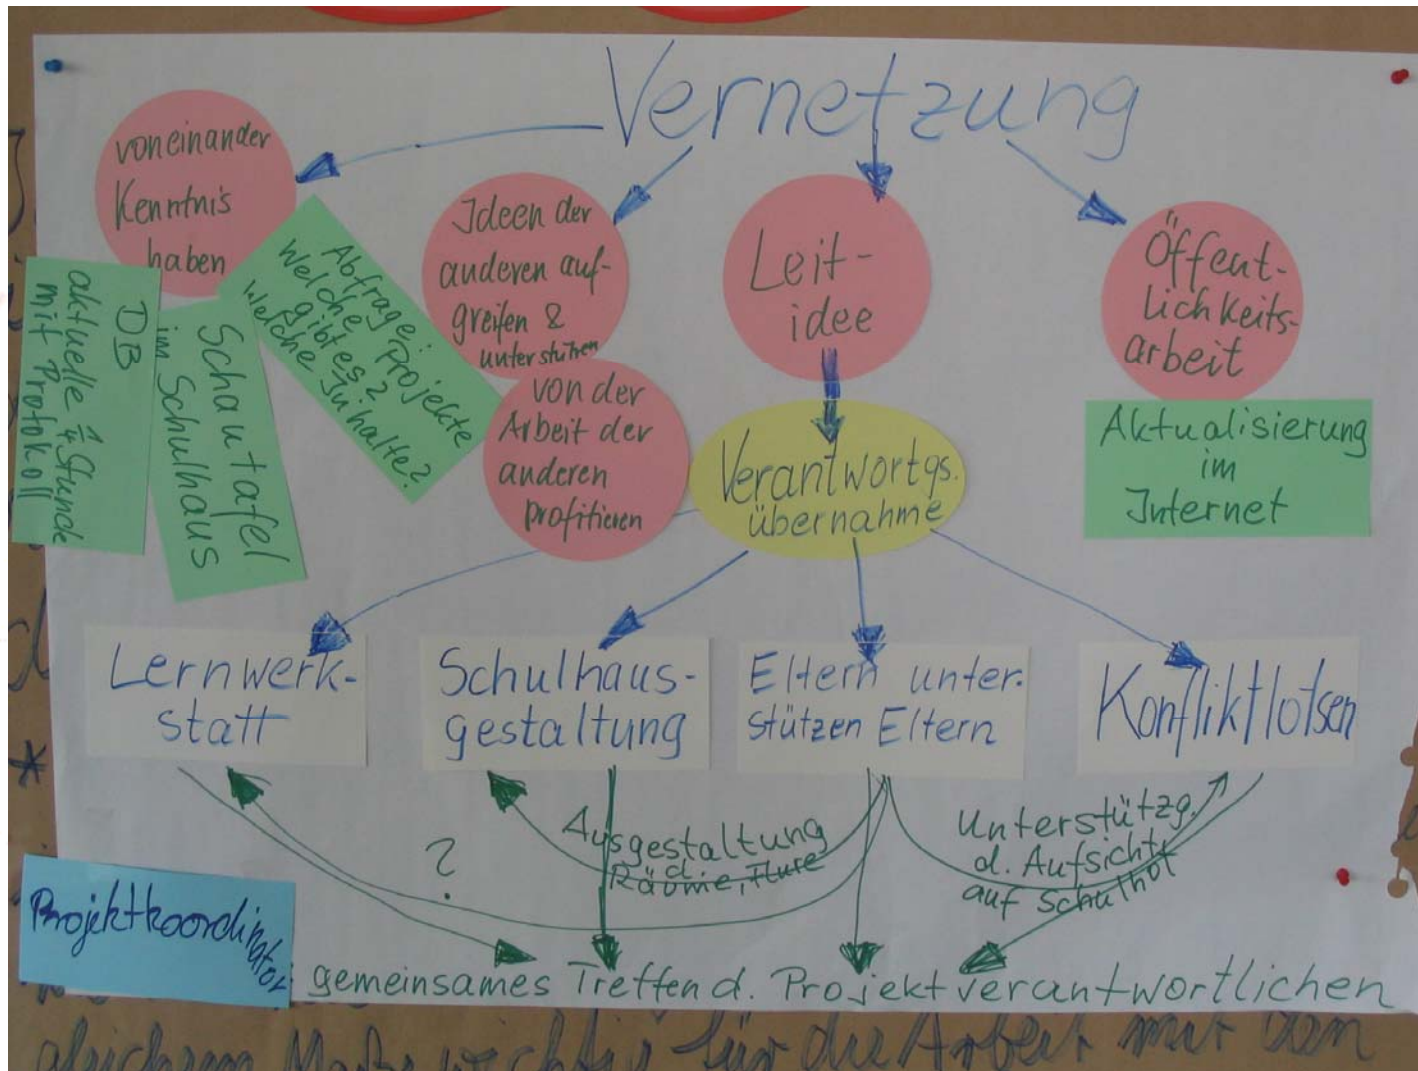 Vernetzung
voneinander
Kenntnis
haben
DB
aktuelle 1/4 Stunde
mit Protokoll
Schautafel
im Schulhaus
Abfrage:
Welche Projekte
gibt es?
Welche Inhalte?
Ideen der
anderen auf-
greifen &
unterstützen
von der
Arbeit der
anderen
profitieren
Leit-
idee
Verantwortgs.
übernahme
Öffent-
lichkeits-
arbeit
Aktualisierung
im
Internet
Lernwerk-
statt
Schulhaus-
gestaltung
Eltern unter-
stützen Eltern
Konfliktlotsen
?
Ausgestaltung
d.
Räume, Flure
Unterstützg.
d. Aufsicht
auf Schulhof
Projektkoordinator
gemeinsames Treffen d. Projektverantwortlichen
gleichem Maße wichtig für die Arbeit mit den